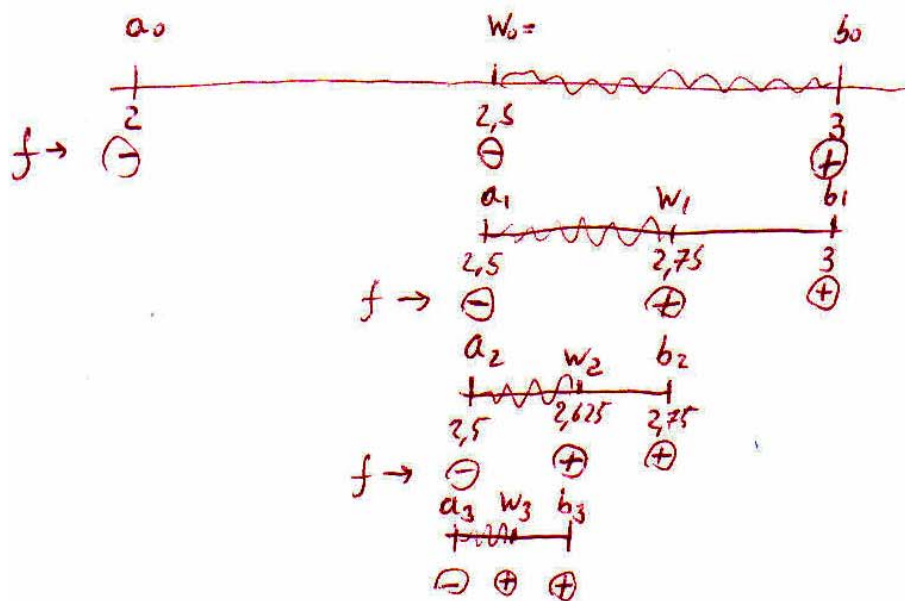 a₀ W₀= b₀
2 2,5 3
f → ⊖ ⊖ ⊕
a₁ W₁ b₁
2,5 2,75 3
f → ⊖ ⊕ ⊕
a₂ W₂ b₂
2,5 2,625 2,75
f → ⊖ ⊕ ⊕
a₃ W₃ b₃
⊖ ⊕ ⊕